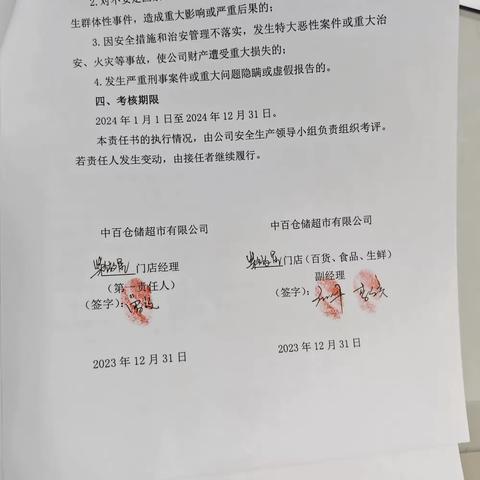 生群体性事件，造成重大影响或严重后果的；
3.因安全措施和治安管理不落实，发生特大恶性案件或重大治
安、火灾等事故，使公司财产遭受重大损失的；
4.发生严重刑事案件或重大问题隐瞒或虚假报告的。
四、考核期限
2024年1月1日至2024年12月31日。
本责任书的执行情况，由公司安全生产领导小组负责组织考评。
若责任人发生变动，由接任者继续履行。
中百仓储超市有限公司
门店经理
（第一责任人）
（签字）：
2023年12月31日
中百仓储超市有限公司
门店（百货、食品、生鲜）
副经理
（签字）：
2023年12月31日